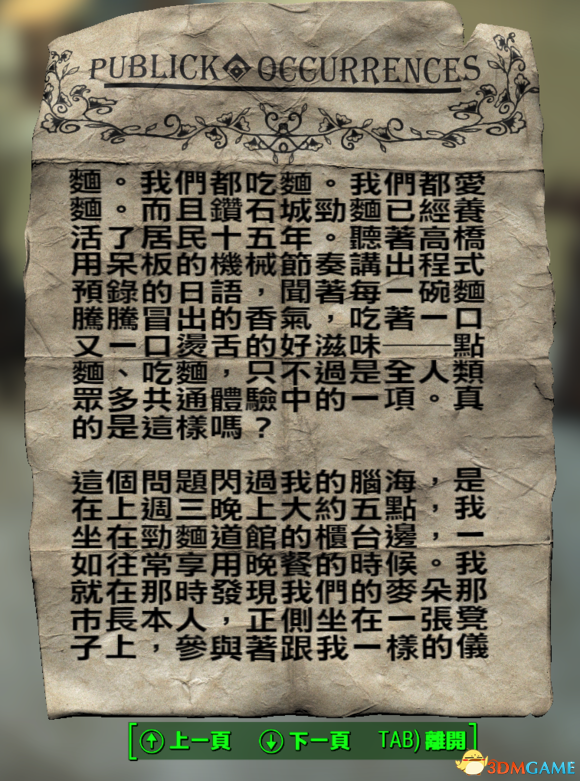 PUBLICK OCCURRENCES
麵。我們都吃麵。我們都愛
麵。而且鑽石城勁麵已經養
活了居民十五年。聽著高橋
用呆板的機械節奏講出程式
預錄的日語,聞著每一碗麵
騰騰冒出的香氣,吃著一口
又一口燙舌的好滋味——點
麵、吃麵,只不過是全人類
眾多共通體驗中的一項。真
的是這樣嗎?
這個問題閃過我的腦海,是
在上週三晚上大約五點,我
坐在勁麵道館的櫃台邊,一
如往常享用晚餐的時候。我
就在那時發現我們的麥朵那
市長本人,正側坐在一張凳
子上,參與著跟我一樣的儀
上一頁 下一頁 TAB) 離開
3DMGAME